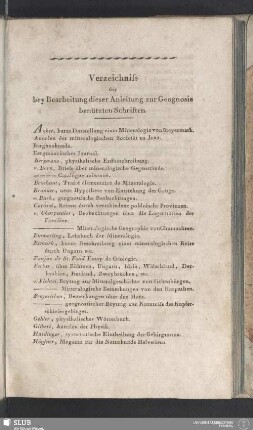 Verzeichniſs
der
bey Bearbeitung dieser Anleitung zur Geognosie
benützten Schriften.
Anker, kurze Darstellung einer Mineralogie von Steyermark.
Annalen der mineralogischen Societät zu Jena.
Bergbaukunde.
Bergmännisches Journal.
Bergmann, physikalische Erdbeschreibung.
v. Born, Briefe über mineralogische Gegenstände.
Catalogue raisonné.
Brochant, Traité élémentaire de Mineralogie.
Brunner, neue Hypothese von Entstehung der Gänge.
v. Buch, geognostische Beobachtungen.
Carosi, Reisen durch verschiedene polnische Provinzen.
v. Charpentier, Beobachtungen über die Lagerstätten der
Erze.
Mineralogische Geographie von Chursachsen.
Emmerling, Lehrbuch der Mineralogie.
Esmark, kurze Beschreibung einer mineralogischen Reise
durch Ungarn etc.
Faujas de St. Fond Essay de Geologie.
v. Fichtel, Beytrag zur Mineralgeschichte von Siebenbürgen.
Mineralogische Bemerkungen von den Karpathen.
Freyesleben, Bemerkungen über den Harz.
geognostischer Beytrag zur Kenntniſs des Kupfer-
schiefergebirges.
Gehler, physikalisches Wörterbuch.
Gilbert, Annalen der Physik.
Haidinger, systematische Eintheilung der Gebirgsarten.
Höpfner, Magazin zur der Naturkunde Helvetiens.